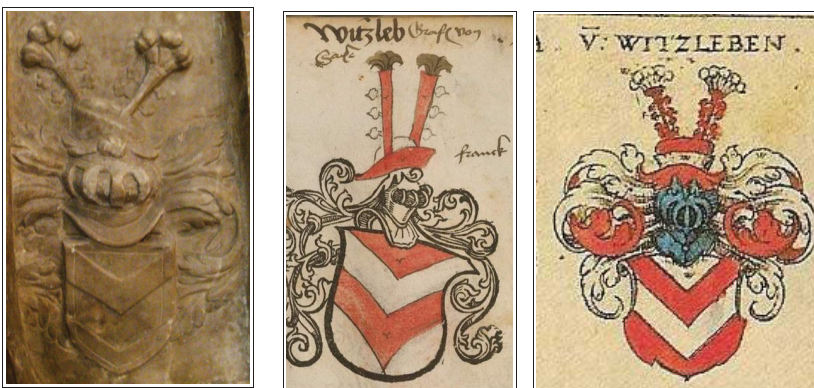 Witzleb Graf von
franck
V: WITZLEBEN.